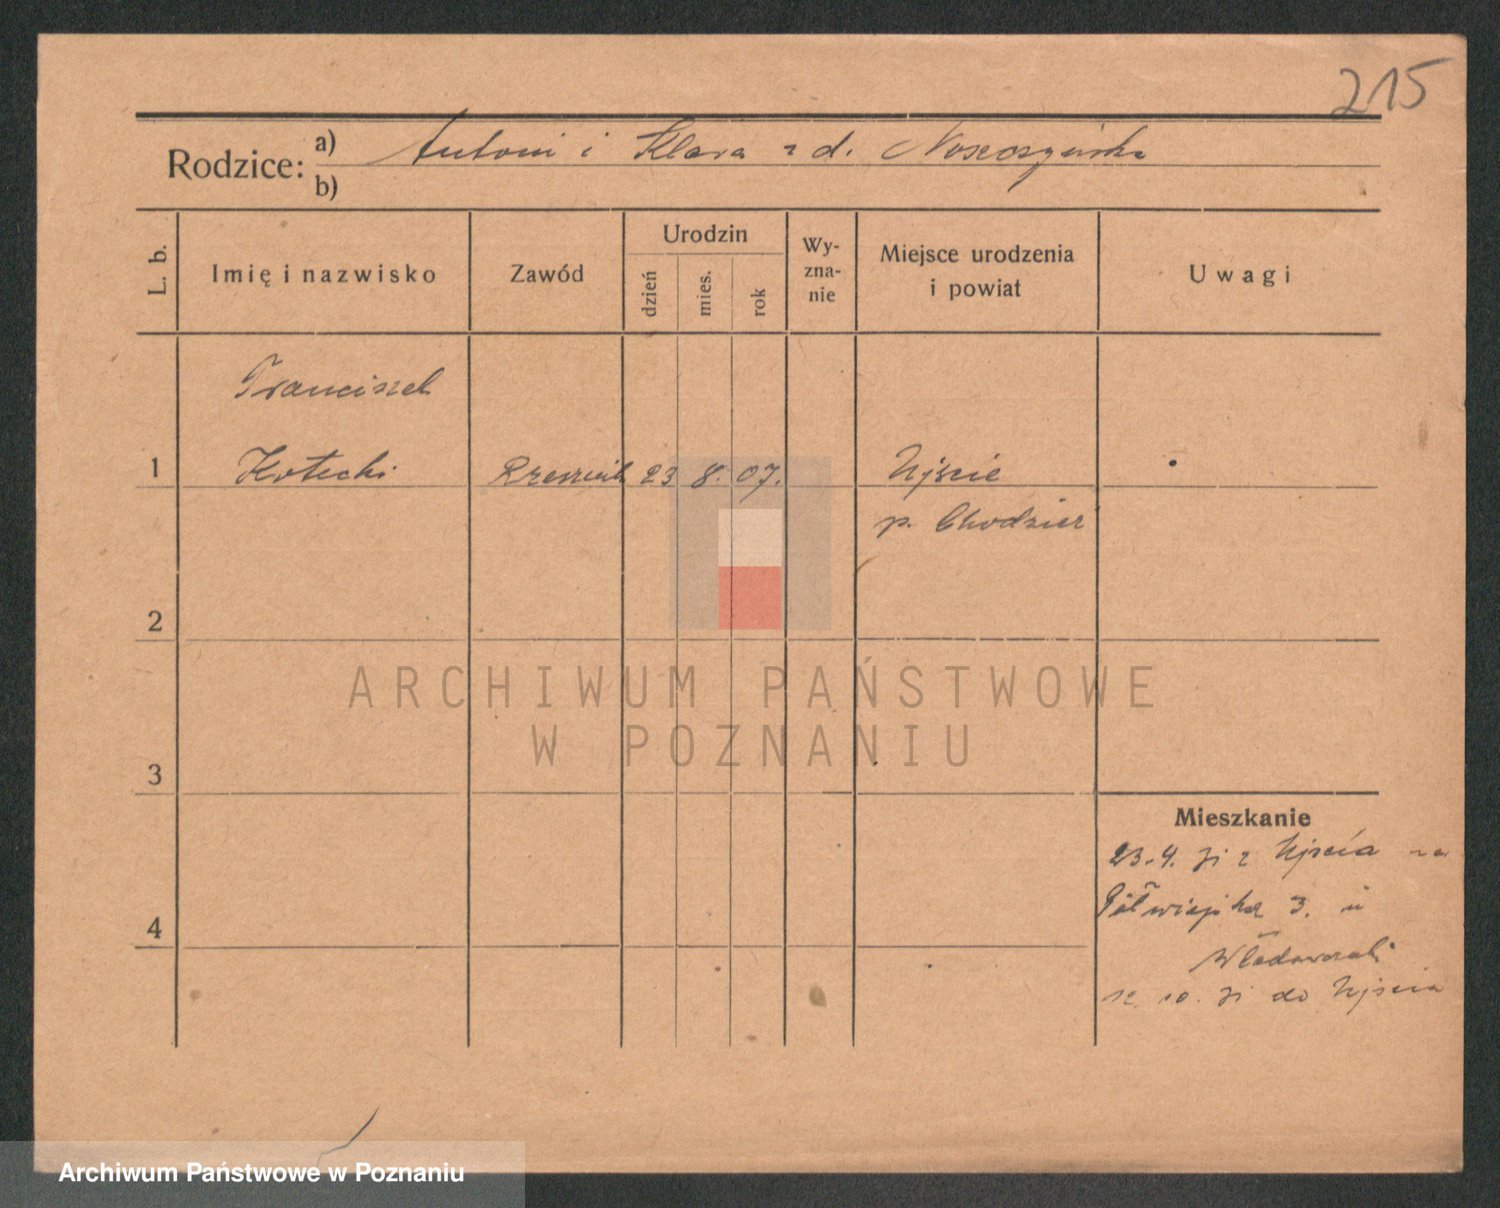 215
Rodzice: a) Antoni i Klara z d.
b)
L. b.
Imię i nazwisko
Zawód
Urodzin
dzień
mies.
rok
Wy-
zna-
nie
Miejsce urodzenia
i powiat
Uwagi
Franciszek
1 Kotecki Rzeźnik 23 8. 07. Ujście
p. Chodzież
2
ARCHIWUM PAŃSTWOWE
W POZNANIU
3
Mieszkanie
23.4. z Ujścia na
Półwiejska 3. u
4
10. do Ujścia
Archiwum Państwowe w Poznaniu